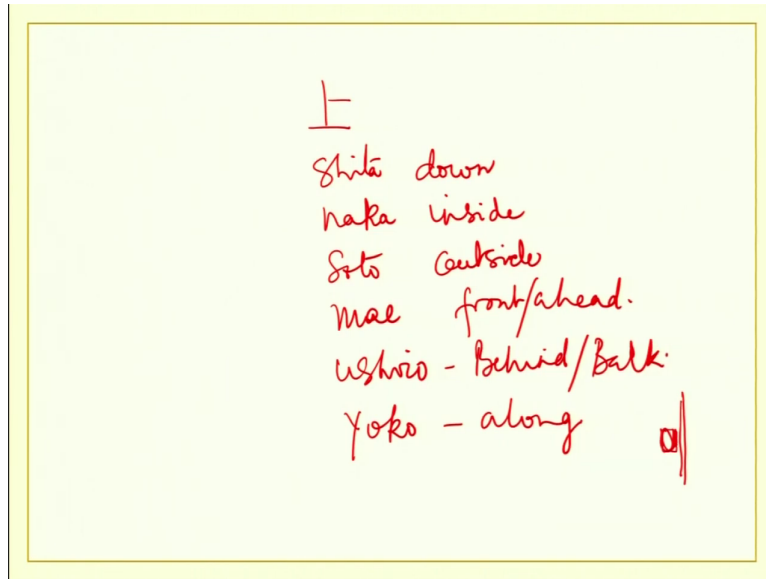 上
Shita down
naka inside
Soto outside
mae front/ahead.
ushiro - Behind/Back.
Yoko - along